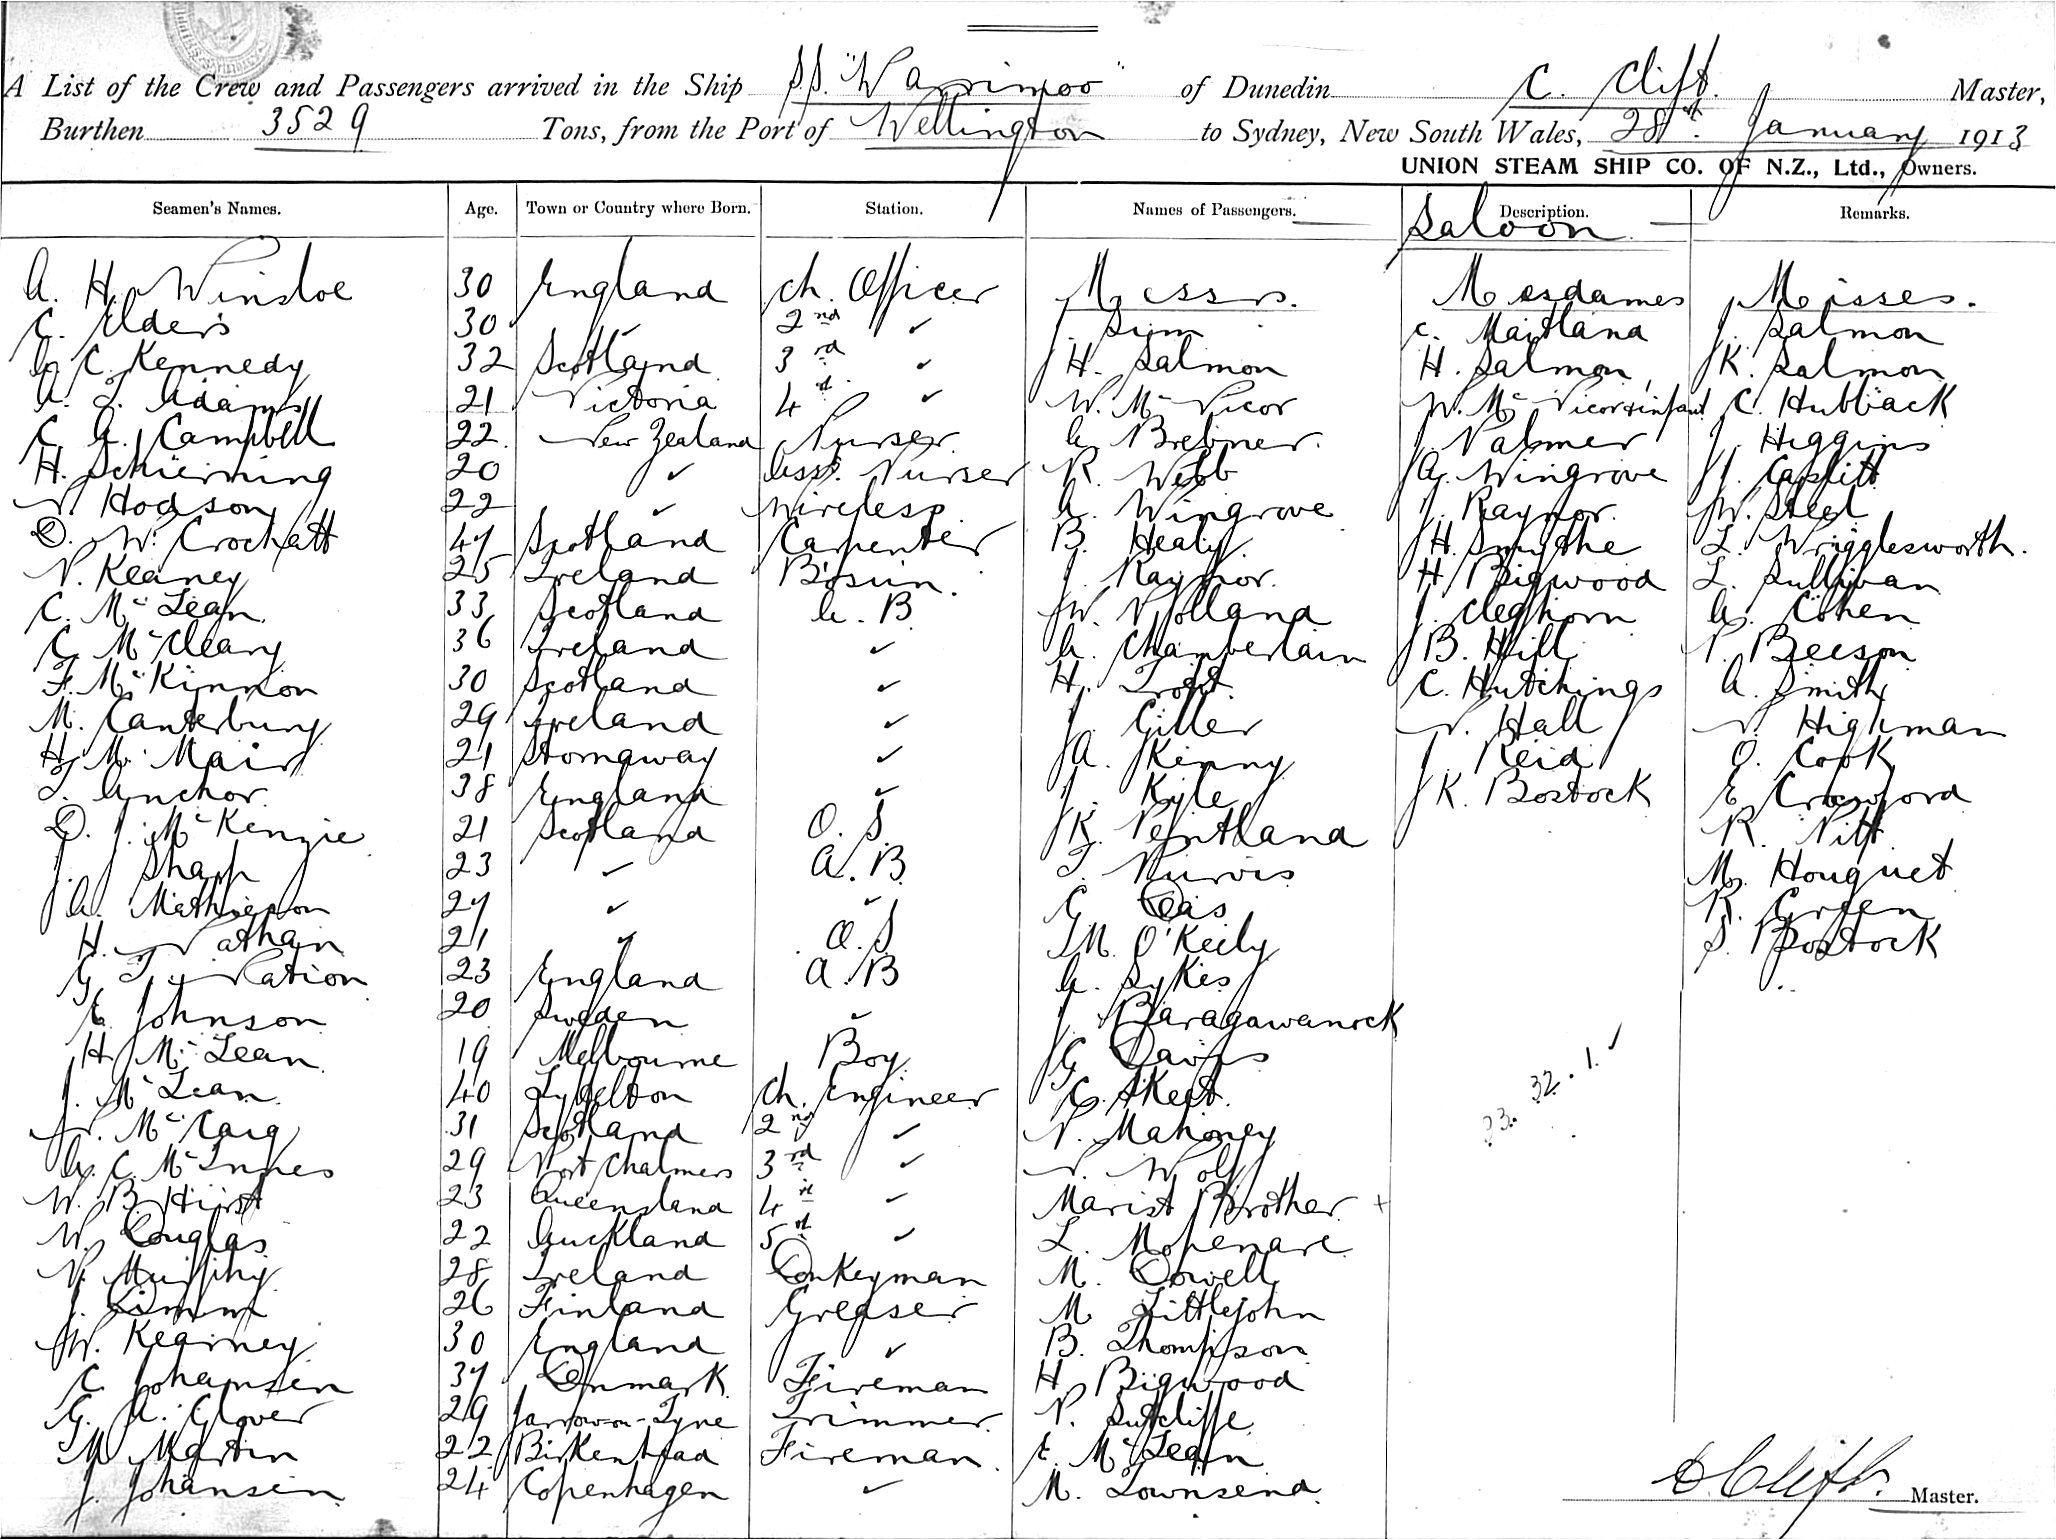 A List of the Crew and Passengers arrived in the Ship S.S. "Warrimoo" of Dunedin C. Clift. Master,
Burthen 3529 Tons, from the Port of Wellington to Sydney, New South Wales, 28th January 1913
UNION STEAM SHIP CO. OF N.Z., Ltd., Owners.
Seamen's Names. Age. Town or Country where Born. Station. Names of Passengers. Description. Remarks.
Saloon
A. H. Winsloe 30 England Ch. Officer Messrs. Mesdames Misses.
C. Elders 30 ✓ 2nd ✓ J. Sim C. Maitland J. Salmon
A. C. Kennedy 32 Scotland 3rd ✓ H. Salmon H. Salmon K. Salmon
A. T. Adams 21 Victoria 4th ✓ W. McVicor W. McVicor & infant C. Hubback
C. A. Campbell 22 New Zealand Purser A. Brebner J. Palmer J. Higgins
H. Schierning 20 ✓ Asst. Purser R. Webb A. Wingrove J. Caslitt
P. Hodson 22 ✓ Wireless A. Wingrove J. Raynor W. Steel
D. W. Crochatt 47 Scotland Carpenter B. Healy H. Smythe L. Wrigglesworth.
P. Keaney 25 Ireland Bosun. J. Raynor. H. Bigwood L. Sullivan
C. McLean 33 Scotland A. B. W. Holland J. Cleghorn A. Cohen
C. McCleary 36 Ireland ✓ A. Chamberlain B. Hill P. Beeson
F. McKinnon 30 Scotland ✓ H. Trott. C. Hutchings A. Smith
M. Canterbury 29 Ireland ✓ J. Giller P. Hall P. Highman
H. M. Mair 21 Stornaway ✓ A. Kenny J. Reid O. Cook
T. Anchor 38 England ✓ J. Kyle K. Bostock E. Crawford
D. J. McKenzie 21 Scotland O. S. K. Pentland R. Nitt
J. Sharp 23 ✓ A. B. T. Purvis M. Houquet
A. Mathieson 27 ✓ ✓ G. Dais R. Green
H. Nathan 21 ✓ O. S M. O'Keily S. Bostock
G. T. Nation 23 England A. B A. Sykes
E. Johnson 20 Sweden ✓ J. Baragawanock
H. McLean 19 Melbourne Boy G. Davis
J. McLean 40 Lyttelton Ch. Engineer C. Skeet.
N. McCaig 31 Scotland 2nd ✓ P. Mahoney
A. C. McInnes 29 Port Chalmers 3rd ✓ P. Wolf
W. B. Hirst 23 Queensland 4th ✓ Marist Brother +
W. Douglas 22 Auckland 5th ✓ L. Mopenare
P. Murphy 28 Ireland Donkeyman M. Dowell
J. Dimm 26 Finland Greaser M. Littlejohn
W. Kearney 30 England ✓ B. Thompson
C. Johansen 37 Denmark Fireman H. Bigwood
G. A. Glover 29 Jarrow-on-Tyne Trimmer P. Sutcliffe
M. Martin 22 Birkenhead Fireman E. McLean
J. Johansen 24 Copenhagen ✓ M. Townsend
23. 32. 1. ✓
C Clift. Master.